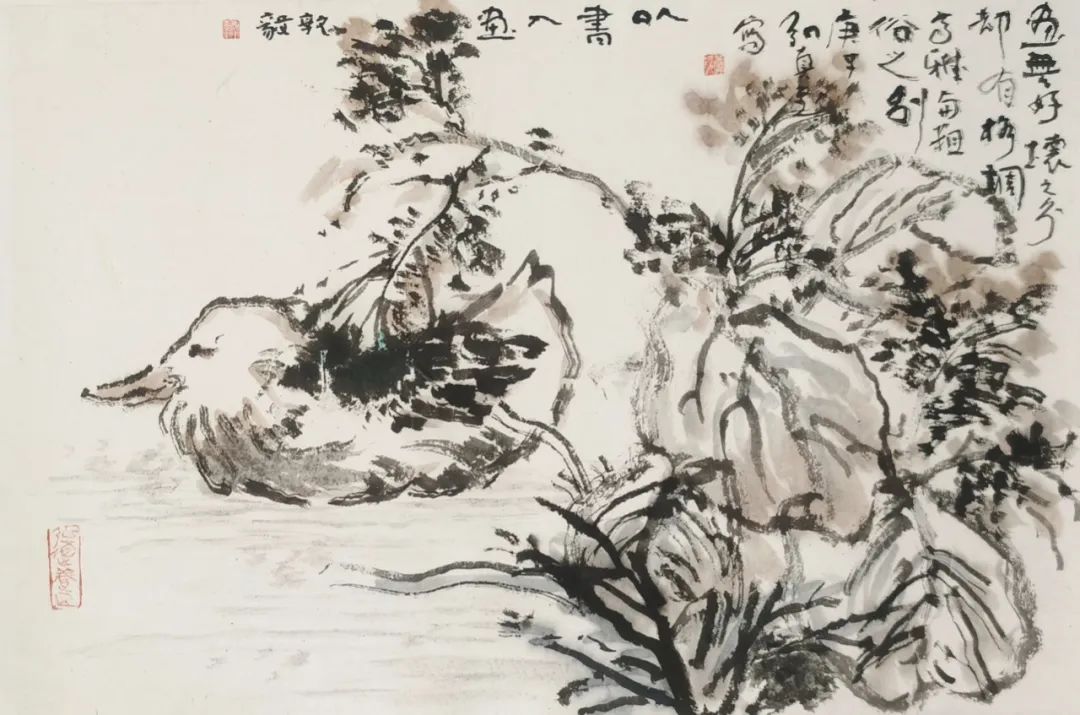 畫無好壞之分
却有格調
高雅與粗
俗之別
庚子
寫
以書入畫
毅